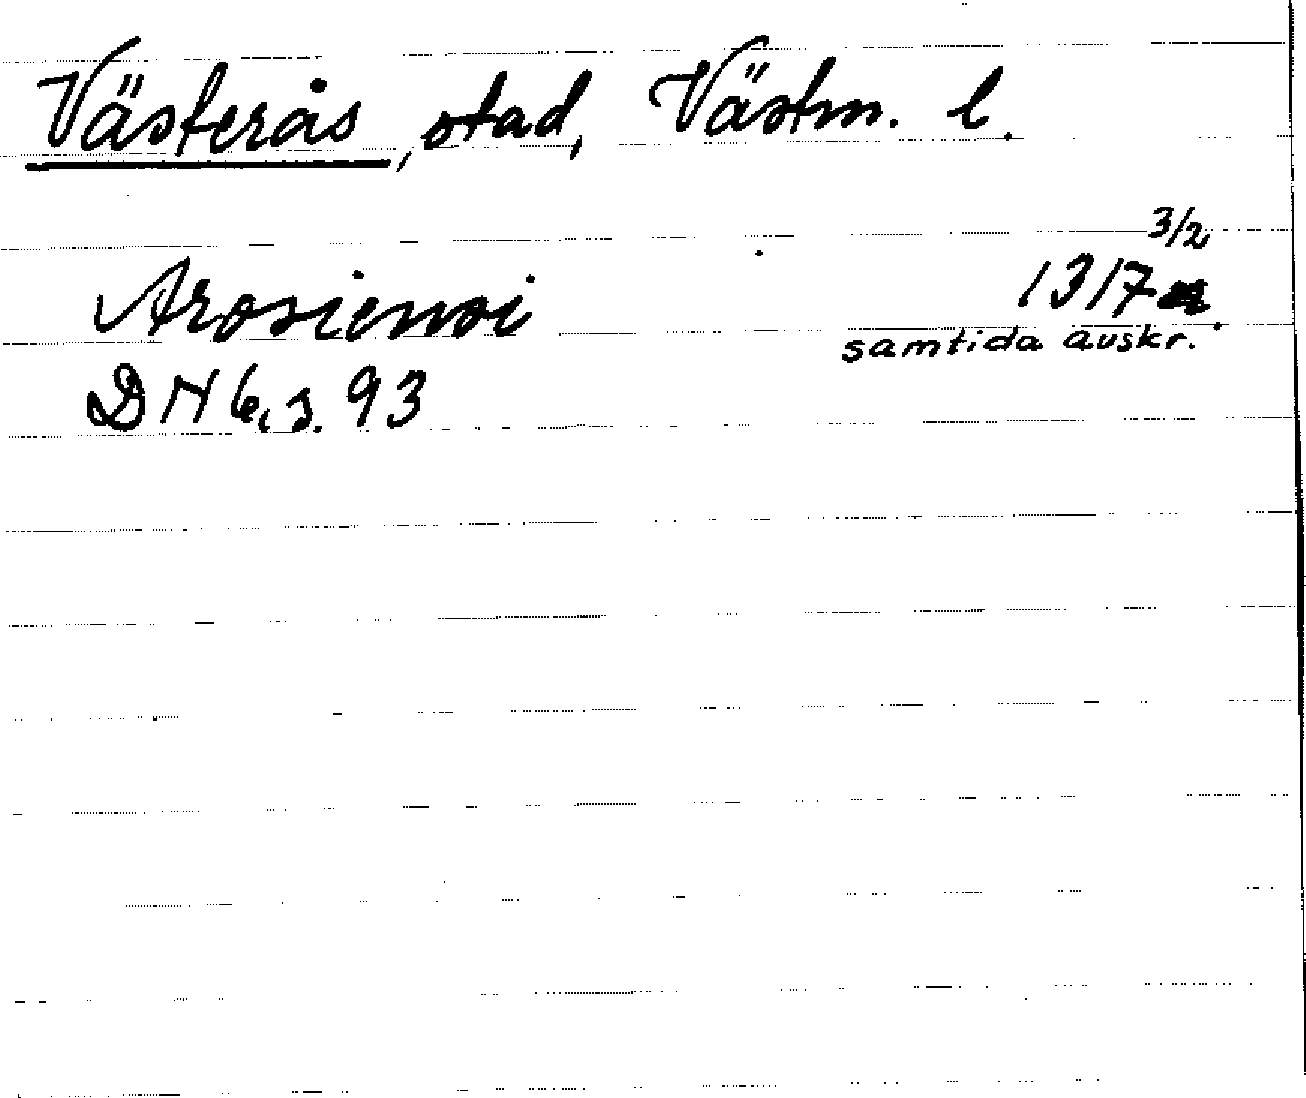 Västerås, stad, Västm. l.
3/2
Arosiensi 1317
samtida avskr.
DN 6, s. 93